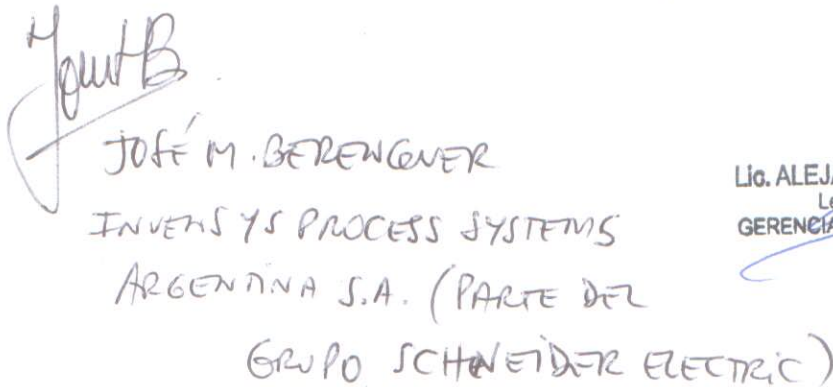 JOSÉ M. BERENGUER
INVENSYS PROCESS SYSTEMS
ARGENTINA S.A. (PARTE DEL
GRUPO SCHNEIDER ELECTRIC)
Lic. ALEJA
Le
GERENCIA